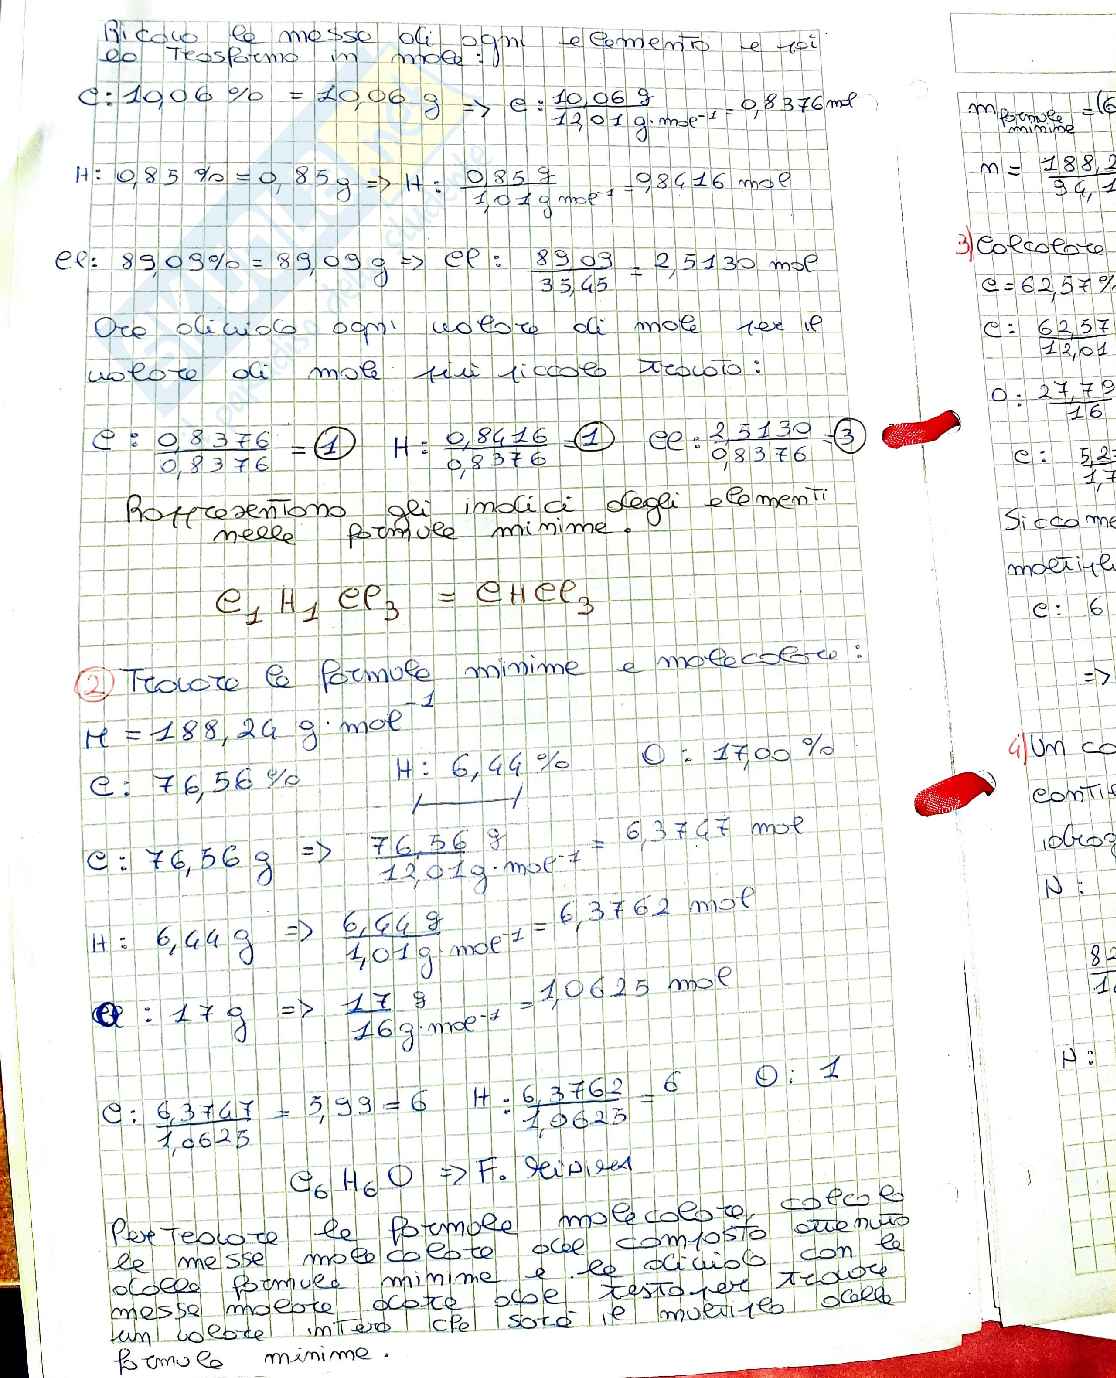 Ricavo la massa di ogni elemento e poi
la trasformo in moli:
C: 10,06 % = 10,06 g => C: 10,06 g / 12,01 g·mol⁻¹ = 0,8376 mol
H: 0,85 % = 0,85 g => H: 0,85 g / 1,01 g mol⁻¹ = 0,8416 mol
Cl: 89,09% = 89,09 g => Cl: 8909 / 35,45 = 2,5130 mol
Ora divido ogni valore di mole per il
valore di mole più piccolo trovato:
C: 0,8376 / 0,8376 = 1 H: 0,8416 / 0,8376 = 1 Cl: 2,5130 / 0,8376 = 3
Rappresentano gli indici degli elementi
nella formula minima.
C₁ H₁ Cl₃ = CHCl₃
2) Trovare la formula minima e molecolare:
M = 188,24 g·mol⁻¹
C: 76,56 % H: 6,44 % O: 17,00 %
C: 76,56 g => 76,56 g / 12,01 g·mol⁻¹ = 6,3747 mol
H: 6,44 g => 6,44 g / 1,01 g·mol⁻¹ = 6,3762 mol
O: 17 g => 17 g / 16 g·mol⁻¹ = 1,0625 mol
C: 6,3747 / 1,0625 = 5,99 = 6 H: 6,3762 / 1,0625 = 6 O: 1
C₆ H₆ O => F.
Per trovare la formula molecolare, calcolo
la massa molecolare del composto ottenuto
dalla formula minima e la divido con la
massa molare data dal testo per trovare
un valore intero che sarà il multiplo della
formula minima.
m formula minima = (6
n = 188,2 / 94,1
3) Calcolare
C = 62,57 %
C: 62,57 / 12,01
O: 27,79 / 16
C: 5,2 / 1,7
Siccome
C: 6
=>
4) Un co
N:
H: